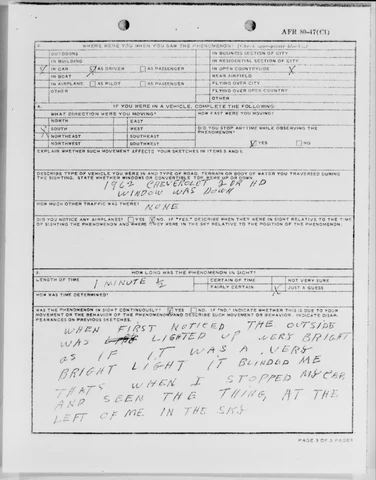 AFR 80-47(C1)
WHERE WERE YOU WHEN YOU SAW THE PHENOMENON?
OUTDOORS
IN BUSINESS SECTION OF CITY
IN BUILDING
IN RESIDENTIAL SECTION OF CITY
X IN CAR X AS DRIVER AS PASSENGER
IN OPEN COUNTRYSIDE X
IN BOAT
NEAR AIRFIELD
IN AIRPLANE AS PILOT AS PASSENGER
FLYING OVER CITY
OTHER
FLYING OVER OPEN COUNTRY
OTHER
A. IF YOU WERE IN A VEHICLE, COMPLETE THE FOLLOWING:
WHAT DIRECTION WERE YOU MOVING?
HOW FAST WERE YOU MOVING?
NORTH EAST
SOUTH WEST
DID YOU STOP ANYTIME WHILE OBSERVING THE PHENOMENON?
NORTHEAST SOUTHEAST
NORTHWEST SOUTHWEST
X YES NO
EXPLAIN WHETHER SUCH MOVEMENT AFFECTS YOUR SKETCHES IN ITEMS 5 AND 6.
DESCRIBE TYPE OF VEHICLE YOU WERE IN AND TYPE OF ROAD, TERRAIN OR BODY OF WATER YOU TRAVERSED DURING
THE SIGHTING. STATE WHETHER WINDOWS OR CONVERTIBLE TOP WERE UP OR DOWN.
1962 CHEVEROLET 2 DR HD
WINDOW WAS DOWN
HOW MUCH OTHER TRAFFIC WAS THERE?
NONE
DID YOU NOTICE ANY AIRPLANES? YES X NO. IF "YES," DESCRIBE WHEN THEY WERE IN SIGHT RELATIVE TO THE TIME
OF SIGHTING THE PHENOMENON AND WHERE THEY WERE IN THE SKY RELATIVE TO THE POSITION OF THE PHENOMENON.
HOW LONG WAS THE PHENOMENON IN SIGHT?
LENGTH OF TIME
1 MINUTE 1/2
CERTAIN OF TIME NOT VERY SURE
FAIRLY CERTAIN X JUST A GUESS
HOW WAS TIME DETERMINED?
WAS THE PHENOMENON IN SIGHT CONTINUOUSLY? X YES NO. IF "NO," INDICATE WHETHER THIS IS DUE TO YOUR
MOVEMENT OR THE BEHAVIOR OF THE PHENOMENON AND DESCRIBE SUCH MOVEMENT OR BEHAVIOR. INDICATE DISAP-
PEARANCES ON PREVIOUS SKETCHES.
WHEN FIRST NOTICED THE OUTSIDE
WAS LIGHTED UP VERY BRIGHT
AS IF IT WAS A VERY
BRIGHT LIGHT IT BLINDED ME
THATS WHEN I STOPPED MY CAR
AND SEEN THE THING AT THE
LEFT OF ME IN THE SKY
PAGE 3 OF 5 PAGES